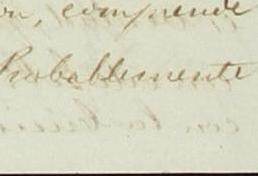 on, comprende
Probablemente